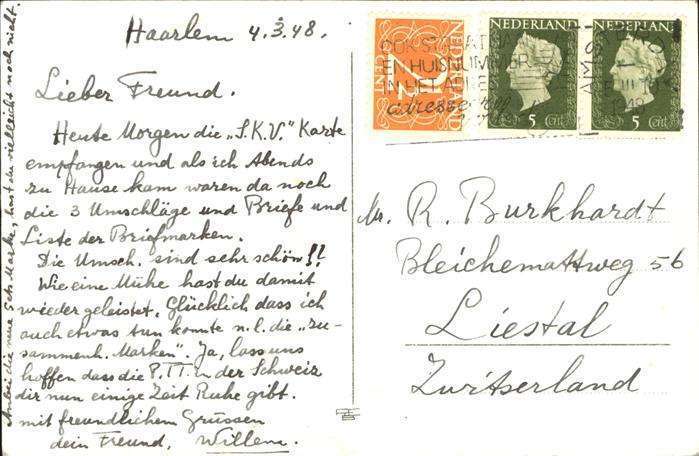 Haarlem 4.3.48.
Lieber Freund.
Heute Morgen die „S.K.V.” Karte
empfangen und als ich Abends
zu Hause kam waren da noch
die 3 Umschläge und Briefe und
Liste der Briefmarken.
Die Umsch. sind sehr schön!!
Wie eine Mühe hast du damit
wieder geleistet. Glücklich dass ich
auch etwas tun konnte n.l. die „zu-
sammenh. Marken”. Ja, lass uns
hoffen dass die P.T.T. in der Schweiz
dir nun einige Zeit Ruhe gibt.
mit freundlichem Grüssen
dein Freund, Willem.
Anbei die neue 5cts Marke, hast du vielleicht noch nicht.
NEDERLAND
2½
CENT
NEDERLAND
5 Cent
NEDERLAND
5 Cent
EN HUISNUMMER
IN HET ADRES
Mr. R. Burkhardt
Bleichemattweg 56
Liestal
Zwitserland